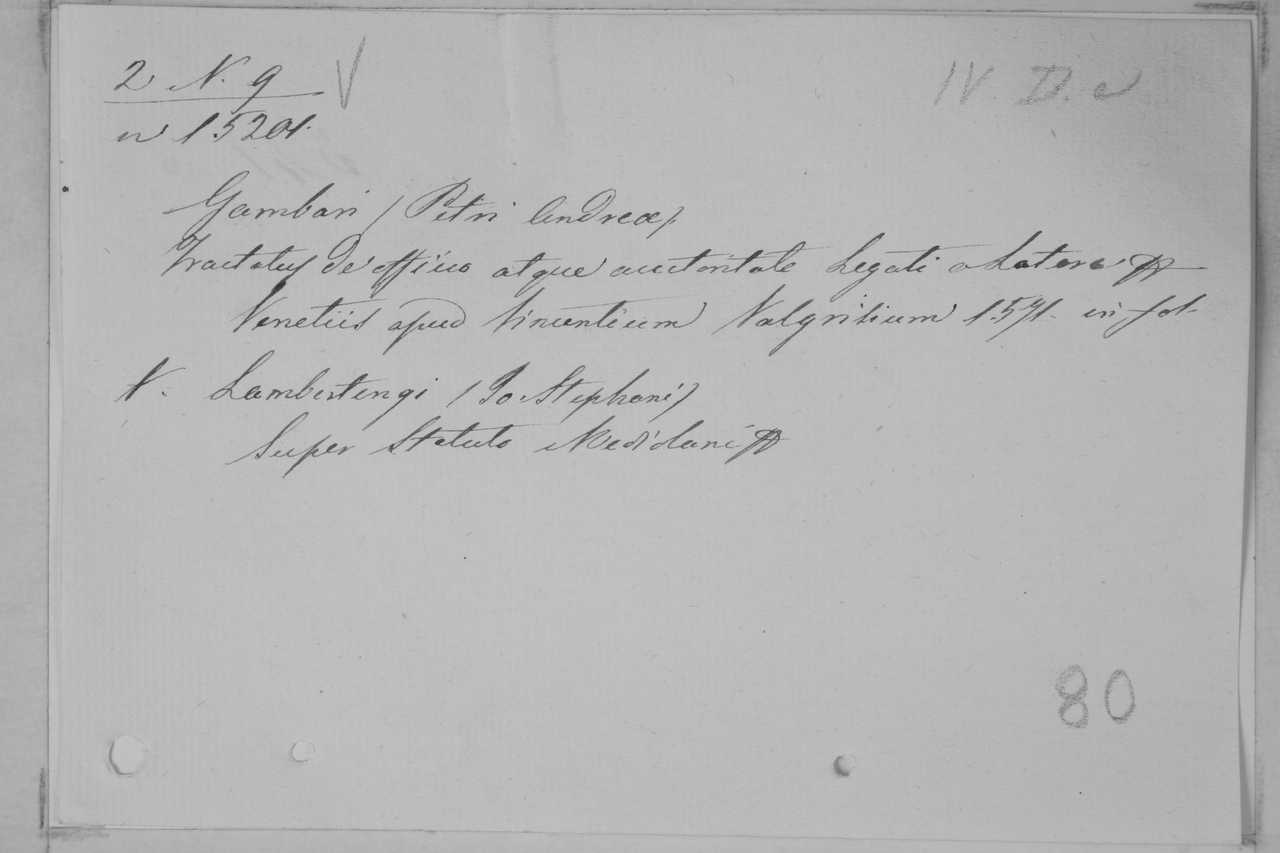 2 N. 9 V
n 15201.
IV. D. c
Gambari (Petri Andreæ)
Tractatus de officio atque auctoritate Legati a Latere
Venetiis apud Vincentium Valgrisium 1571. in fol.
V. Lambertengi (Jo: Stephani)
Super Statuto Mediolani
80